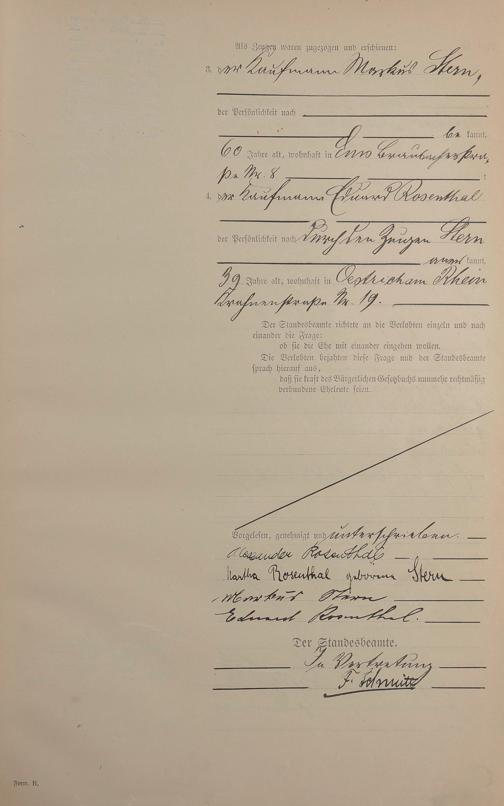 Als Zeugen waren zugezogen und erschienen:
3. der Kaufmann Markus Stern,
der Persönlichkeit nach
be kannt,
60 Jahre alt, wohnhaft in Ems Braubacherstra-
ße Nr. 8
4. der Kaufmann Eduard Rosenthal
der Persönlichkeit nach durch den Zeugen Stern
aner kannt,
39 Jahre alt, wohnhaft in Oestrich am Rhein
Krahnenstraße Nr. 19.
Der Standesbeamte richtete an die Verlobten einzeln und nach
einander die Frage:
ob sie die Ehe mit einander eingehen wollen.
Die Verlobten bejahten diese Frage und der Standesbeamte
sprach hierauf aus,
daß sie kraft des Bürgerlichen Gesetzbuchs nunmehr rechtmäßig
verbundene Eheleute seien.
Vorgelesen, genehmigt und unterschrieben.
Alexander Rosenthal
Martha Rosenthal geborene Stern
Markus Stern
Eduard Rosenthal.
Der Standesbeamte.
In Vertretung
F. Schmitt
Form. B.